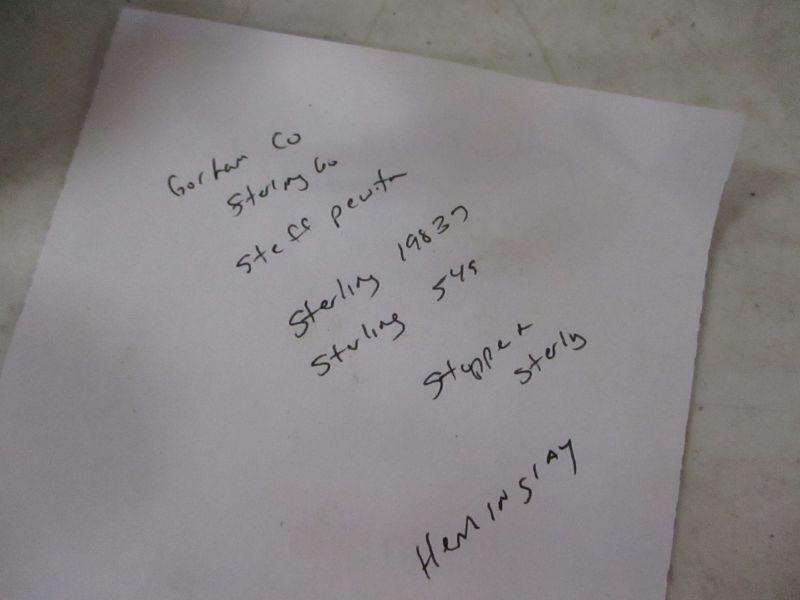 Gorham Co
Sterling Co
Steff pewter
Sterling 19837
Sterling 545
Stopper
Sterly
HemINSlAY